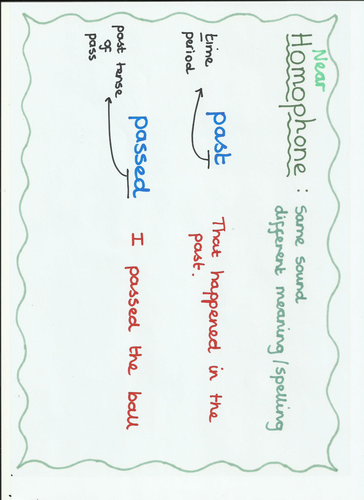 Near
Homophone : Same sound
different meaning/spelling
time
period
past
That happened in the
past.
past tense
of
pass
passed
I passed the ball